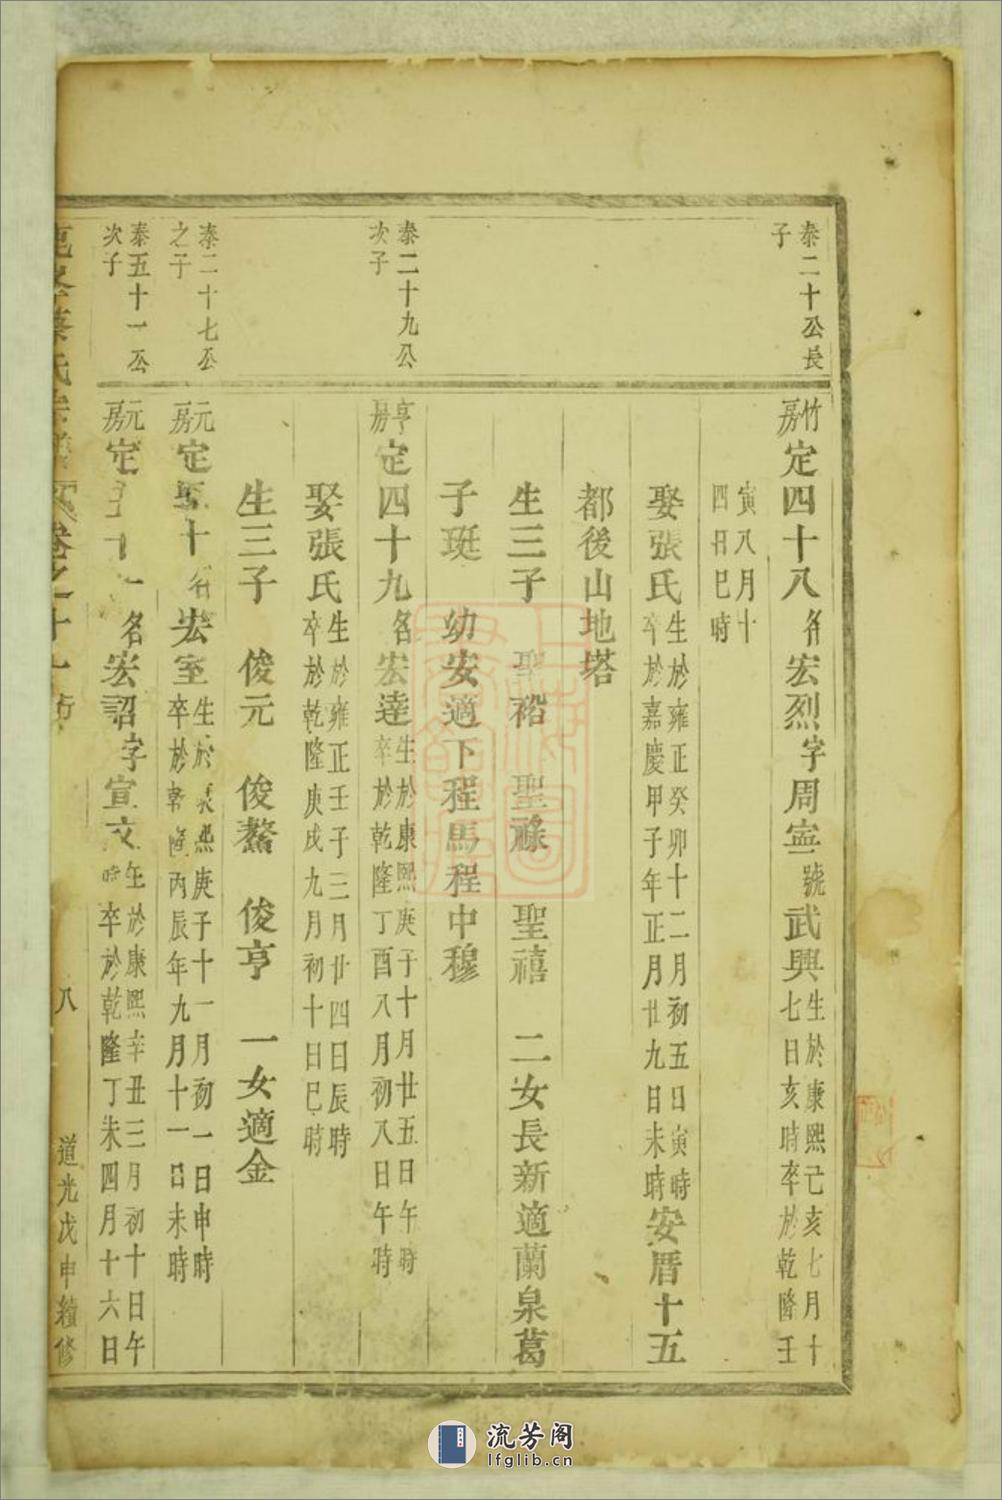 泰二十公長
子
竹房定四十八名宏烈字周寍號武興生於康熙己亥七月十
七日亥時卒於乾隆壬
寅八月十
四日巳時
娶張氏生於雍正癸卯十二月初五日寅時
卒於嘉慶甲子年正月廿九日未時安厝十五
都後山地塔
生三子 聖裕 聖祿 聖禧 二女長新適蘭泉葛
子珽 幼安適下程馬程中穆
泰二十九公
次子
亨房定四十九名宏達生於康熙庚子十月廿五日午時
卒於乾隆丁酉八月初八日午時
娶張氏生於雍正壬子三月廿四日辰時
卒於乾隆庚戌九月初十日巳時
生三子 俊元 俊鰲 俊亨 一女適金
泰二十七公
之子
元房定 十 名宏室生於 熙庚子十一月初一日申時
卒於乾隆丙辰年九月十一日未時
泰五十一公
次子
元房定 十一名宏詔字宣文生於康熙辛丑三月初十日午
時卒於乾隆丁未四月十六日
蔡氏宗譜 卷之十一 行
八
道光戊申續修
流芳阁
lfglib.cn